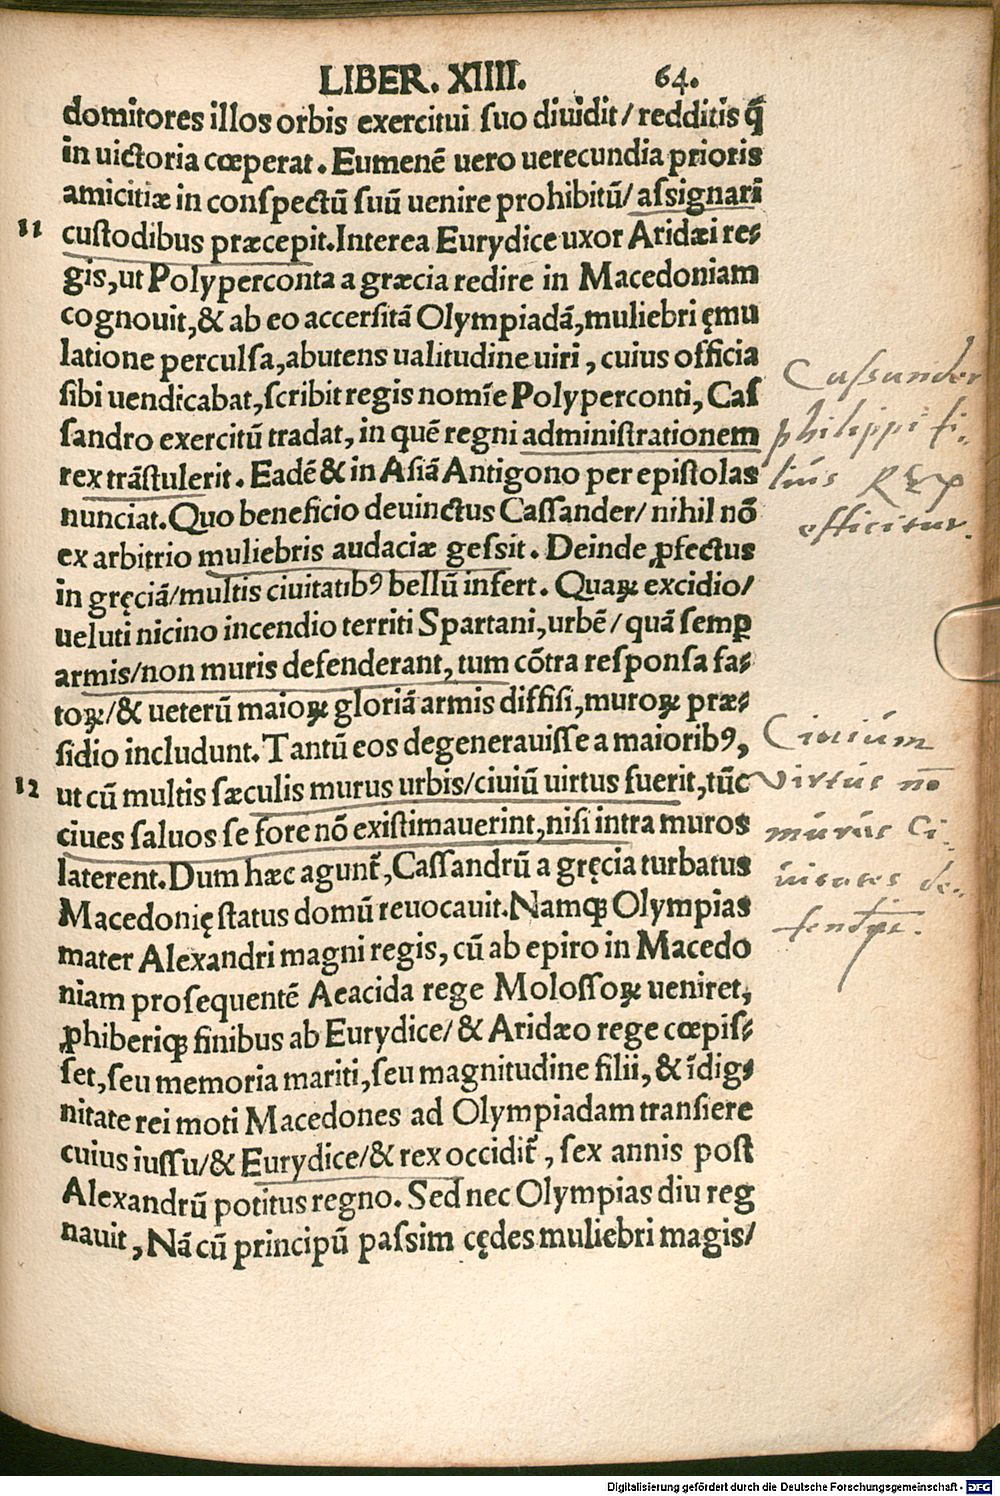 LIBER. XIIII. 64.
domitores illos orbis exercitui suo diuidit/ redditis q̃
in uictoria cœperat. Eumenē uero uerecundia prioris
amicitiæ in conspectū suū uenire prohibitū/ assignari
11 custodibus præcepit. Interea Eurydice uxor Aridæi re⸗
gis, ut Polyperconta a græcia redire in Macedoniam
cognouit, & ab eo accersitā Olympiadā, muliebri ęmu
latione perculsa, abutens ualitudine uiri, cuius officia
sibi uendicabat, scribit regis nomīe Polyperconti, Cas
sandro exercitū tradat, in quē regni administrationem
rex trāstulerit. Eadē & in Asiā Antigono per epistolas
nunciat. Quo beneficio deuinctus Cassander/ nihil nō
ex arbitrio muliebris audaciæ gessit. Deinde ꝓfectus
in gręciā/ multis ciuitatibꝰ bellū infert. Quaꝝ excidio/
ueluti nicino incendio territi Spartani, urbē/ quā semꝑ
armis/ non muris defenderant, tum cōtra responsa fa⸗
toꝝ/ & ueterū maioꝝ gloriā armis diffisi, muroꝝ præ⸗
sidio includunt. Tantū eos degenerauisse a maioribꝰ,
12 ut cū multis sæculis murus urbis/ ciuiū uirtus fuerit, tūc
ciues saluos se fore nō existimauerint, nisi intra muros
laterent. Dum hæc agunt᷑, Cassandrū a gręcia turbatus
Macedonię status domū reuocauit. Namqꝫ Olympias
mater Alexandri magni regis, cū ab epiro in Macedo
niam prosequentē Aeacida rege Molossoꝝ ueniret,
ꝓhiberiqꝫ finibus ab Eurydice/ & Aridæo rege cœpis⸗
set, seu memoria mariti, seu magnitudine filii, & īdig⸗
nitate rei moti Macedones ad Olympiadam transiere
cuius iussu/ & Eurydice/ & rex occidit᷑, sex annis post
Alexandrū potitus regno. Sed nec Olympias diu reg
nauit, Nā cū principū passim cędes muliebri magis/
Cassander
philippi fi⸗
lius REX
efficitur.
Ciuium
virtus nō
murus Ci⸗
uitates de⸗
Digitalisierung gefördert durch die Deutsche Forschungsgemeinschaft - DFG